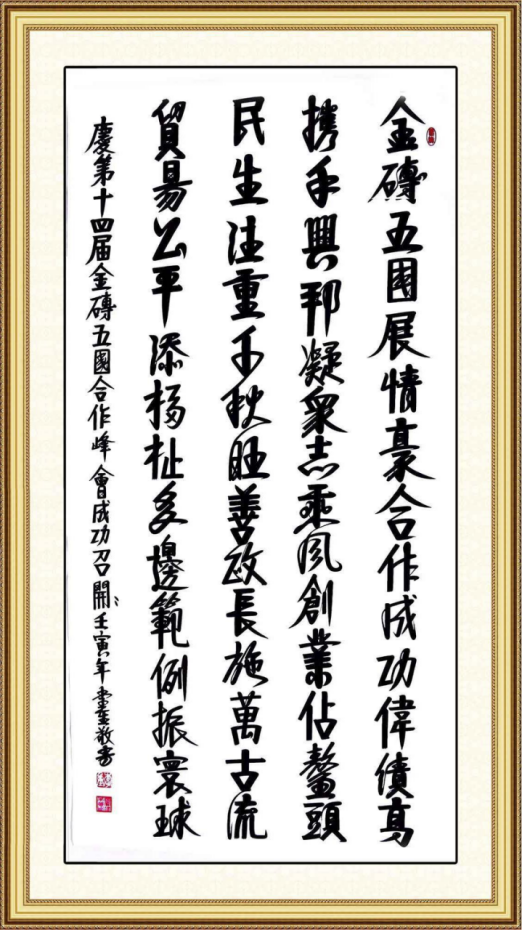 金磚五國展情豪合作成功偉績高
携手興邦凝衆志乘风創業佔鰲頭
民生注重千秋旺善政長施萬古流
貿易公平添楊祉多邊範例振寰球
慶第十四届金磚五國合作峰會成功召開
壬寅年 敬書